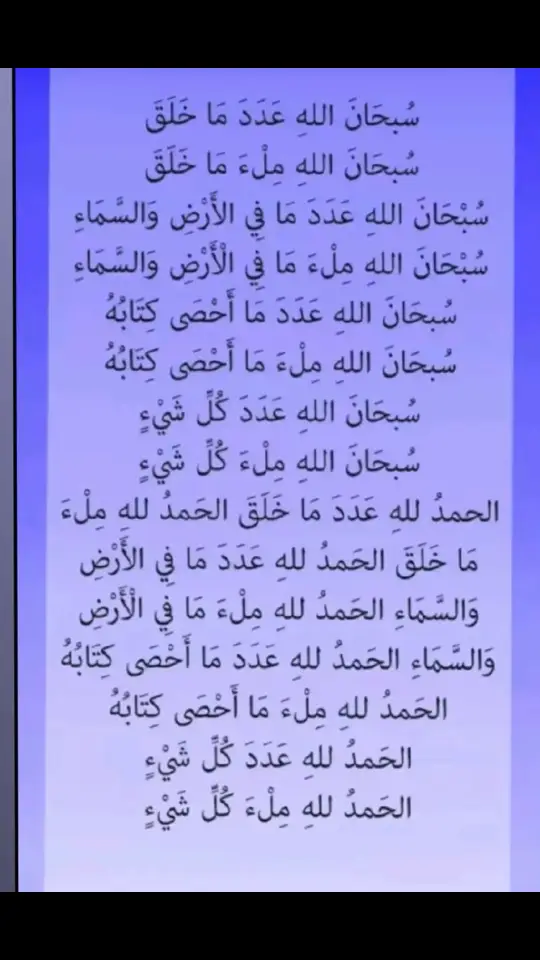 سُبحَانَ اللهِ عَدَدَ مَا خَلَقَ
سُبحَانَ اللهِ مِلْءَ مَا خَلَقَ
سُبْحَانَ اللهِ عَدَدَ مَا فِي الأَرْضِ وَالسَّمَاءِ
سُبْحَانَ اللهِ مِلْءَ مَا فِي الْأَرْضِ وَالسَّمَاءِ
سُبحَانَ اللهِ عَدَدَ مَا أَحْصَى كِتَابُهُ
سُبحَانَ اللهِ مِلْءَ مَا أَحْصَى كِتَابُهُ
سُبحَانَ اللهِ عَدَدَ كُلِّ شَيْءٍ
سُبحَانَ اللهِ مِلْءَ كُلِّ شَيْءٍ
الحمدُ للهِ عَدَدَ مَا خَلَقَ الحَمدُ للهِ مِلْءَ
مَا خَلَقَ الحَمدُ للهِ عَدَدَ مَا فِي الأَرْضِ
وَالسَّمَاءِ الحَمدُ للهِ مِلْءَ مَا فِي الْأَرْضِ
وَالسَّمَاءِ الحَمدُ للهِ عَدَدَ مَا أَحْصَى كِتَابُهُ
الحَمدُ للهِ مِلْءَ مَا أَحْصَى كِتَابُهُ
الحَمدُ للهِ عَدَدَ كُلِّ شَيْءٍ
الحَمدُ للهِ مِلْءَ كُلِّ شَيْءٍ